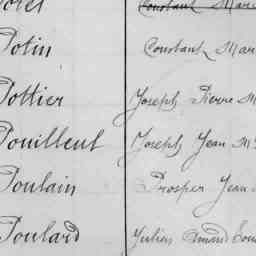 Constant Mar
Potin Constant Mar
Pottier Joseph Pierre M
Pouilleul Joseph Jean M
Poulain Prosper Jean
Poulard Julien Amand Lou